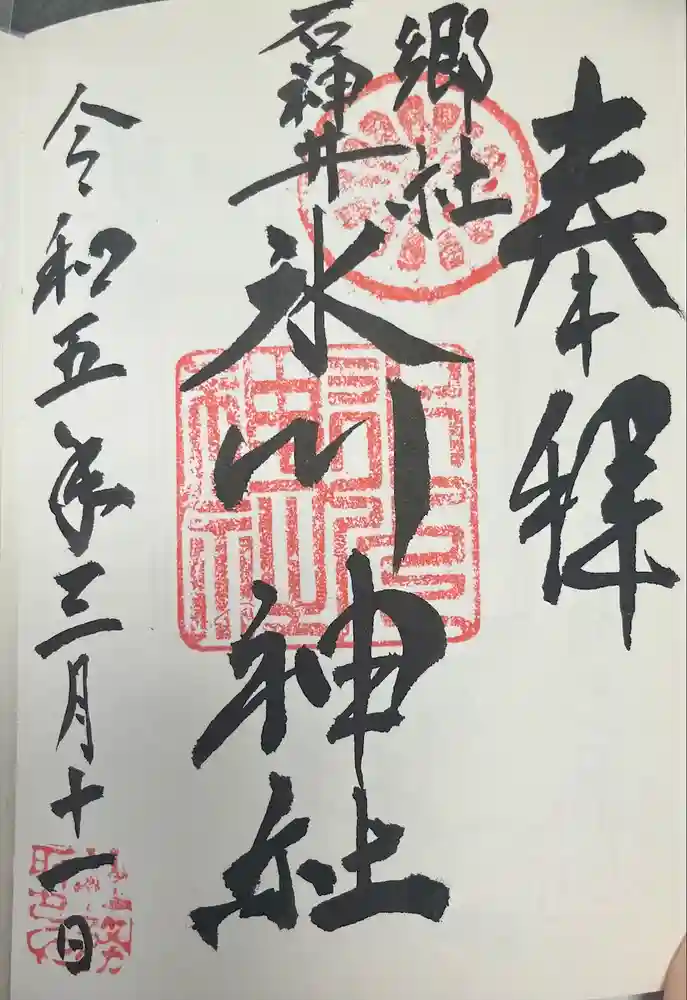 奉拝
郷社
石神井
氷川神社
令和五年三月十一日